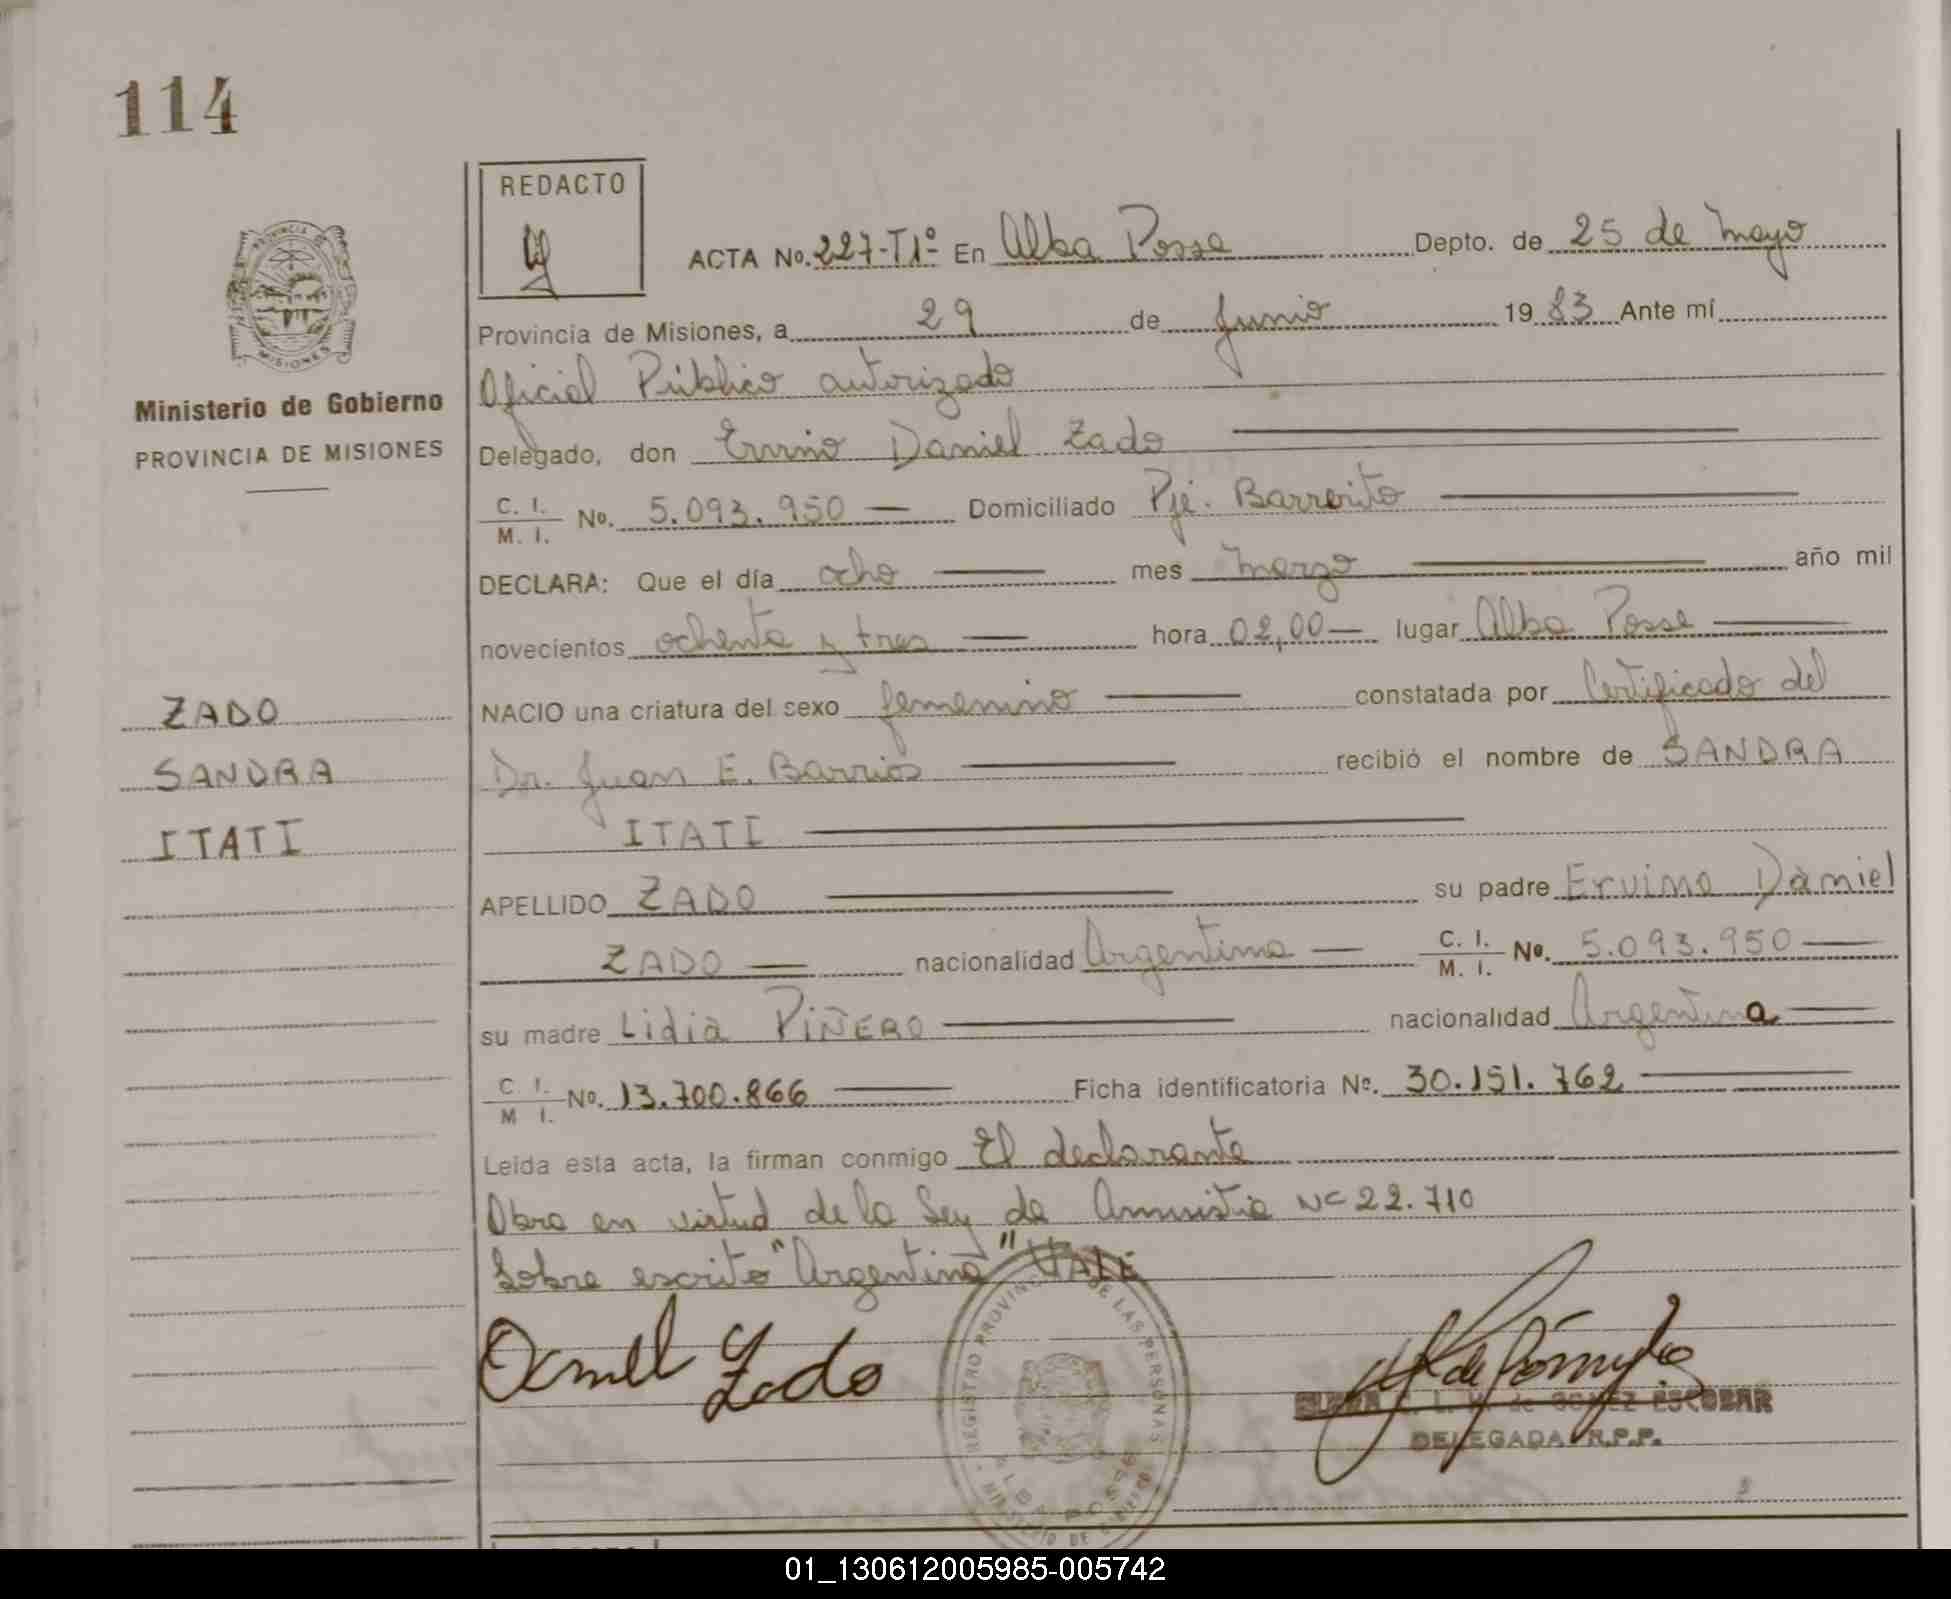 114
REDACTO
ACTA No. 227-T1º En Alba Posse Depto. de 25 de Mayo
Provincia de Misiones, a 29 de Junio 1983 Ante mí
Oficial Público autorizado
Ministerio de Gobierno
PROVINCIA DE MISIONES
Delegado, don Ervino Daniel Zado
C. I. / M. I. No. 5.093.950 — Domiciliado Pje. Barrerito
DECLARA: Que el día ocho — mes Marzo — año mil
novecientos ochenta y tres — hora 02,00 — lugar Alba Posse —
NACIO una criatura del sexo femenino — constatada por Certificado del
Dr. Juan E. Barrios — recibió el nombre de SANDRA
ITATI
ZADO
SANDRA
ITATI
APELLIDO ZADO — su padre Ervino Daniel
ZADO — nacionalidad Argentina — C. I. / M. I. No. 5.093.950 —
su madre Lidia PIÑERO — nacionalidad Argentina —
C. I. / M I. No. 13.700.866 — Ficha identificatoria No. 30.151.762 —
Leida esta acta, la firman conmigo El declarante
Obra en virtud de la Ley de Amnistia Nº 22.710
Sobre escrito "Argentina" VALE
Daniel Zado
REGISTRO PROVINCIAL DE LAS PERSONAS
ALBA POSSE
MINISTERIO DE GOBIERNO
L. M. de GOMEZ ESCOBAR
DELEGADA R.P.P.
01_130612005985-005742